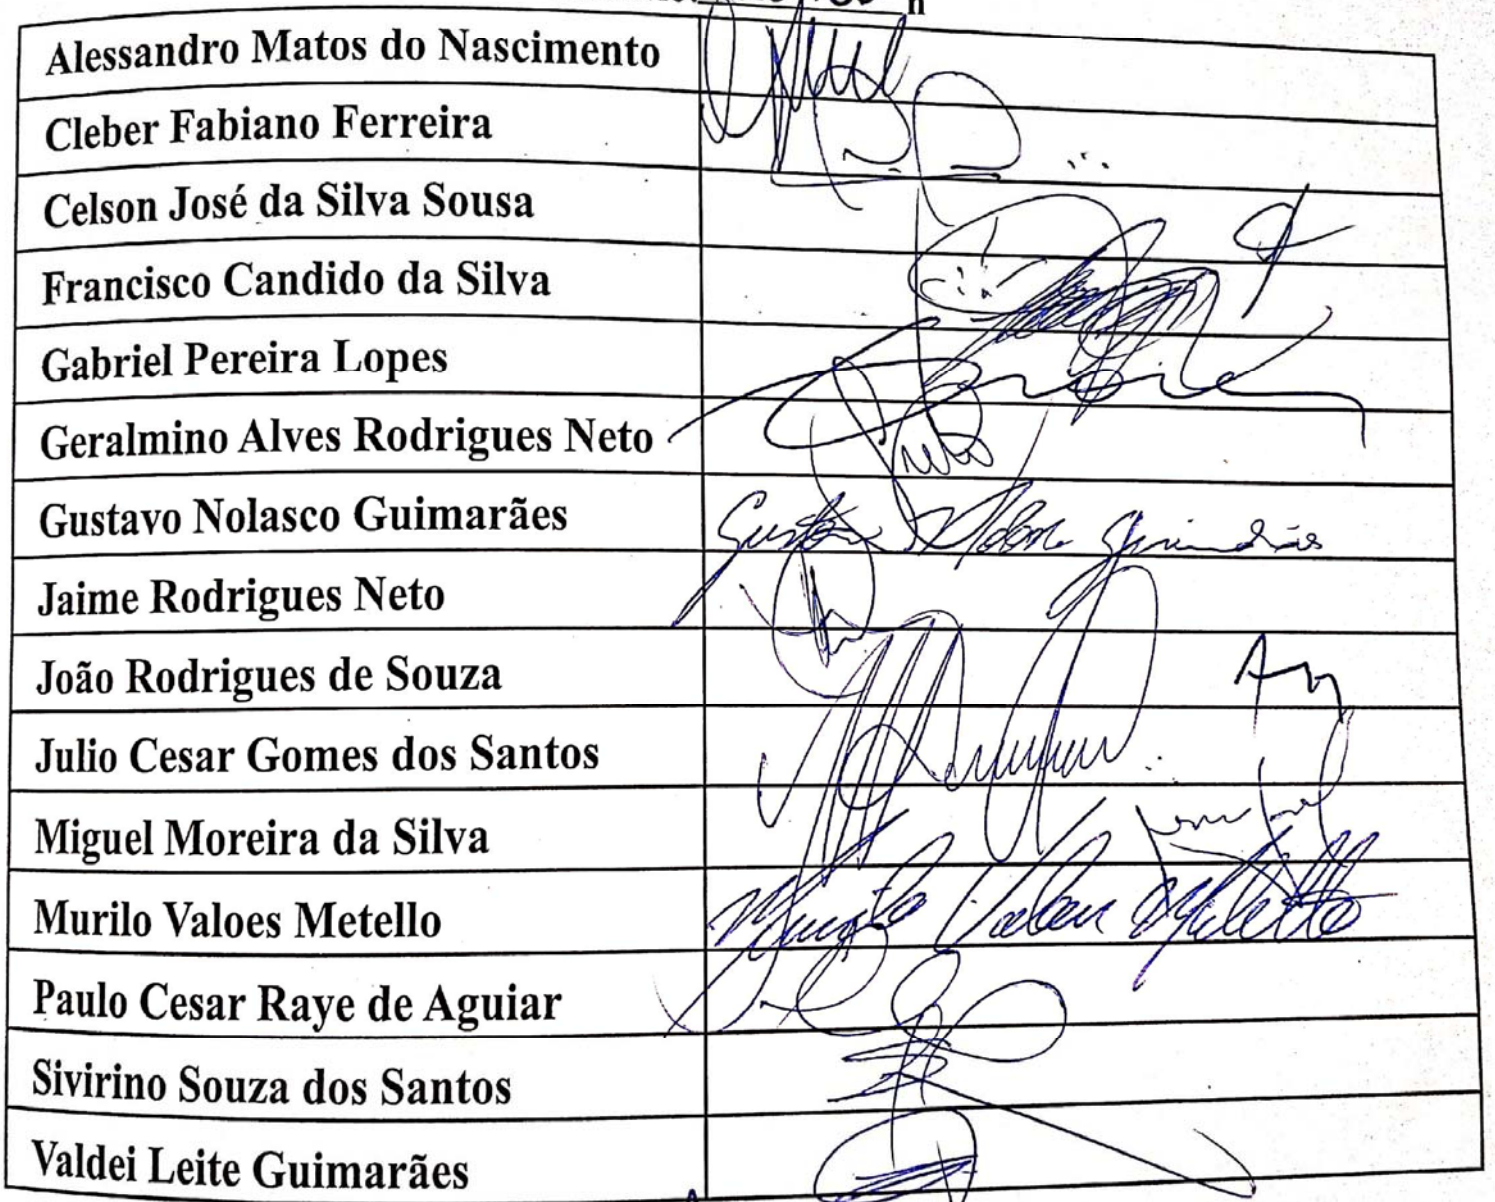 Alessandro Matos do Nascimento
Cleber Fabiano Ferreira
Celson José da Silva Sousa
Francisco Candido da Silva
Gabriel Pereira Lopes
Geralmino Alves Rodrigues Neto
Gustavo Nolasco Guimarães
Gustavo Nolasco Guimarães
Jaime Rodrigues Neto
João Rodrigues de Souza
Julio Cesar Gomes dos Santos
Miguel Moreira da Silva
Murilo Valoes Metello
Murilo Valoes Metello
Paulo Cesar Raye de Aguiar
Sivirino Souza dos Santos
Valdei Leite Guimarães